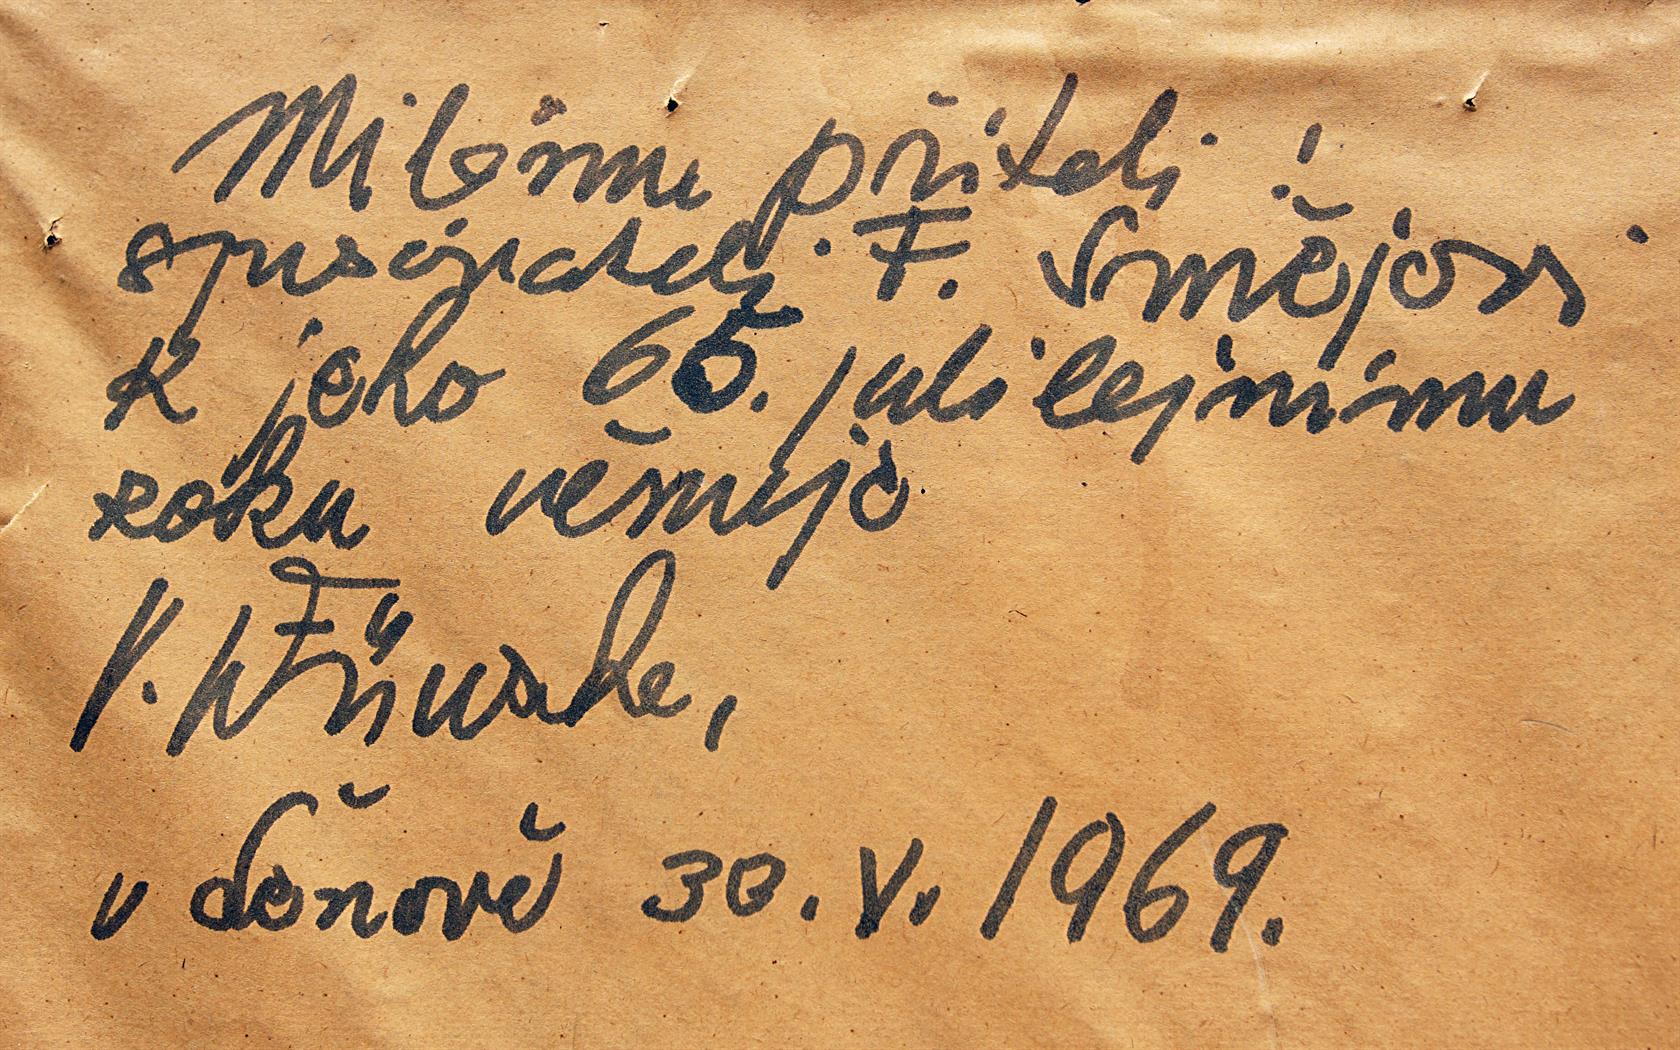 Milému příteli !
spisovateli F. Smějovi
k jeho 65. jubilejnímu
roku věnuje
V.
v děnově 30. V. 1969.